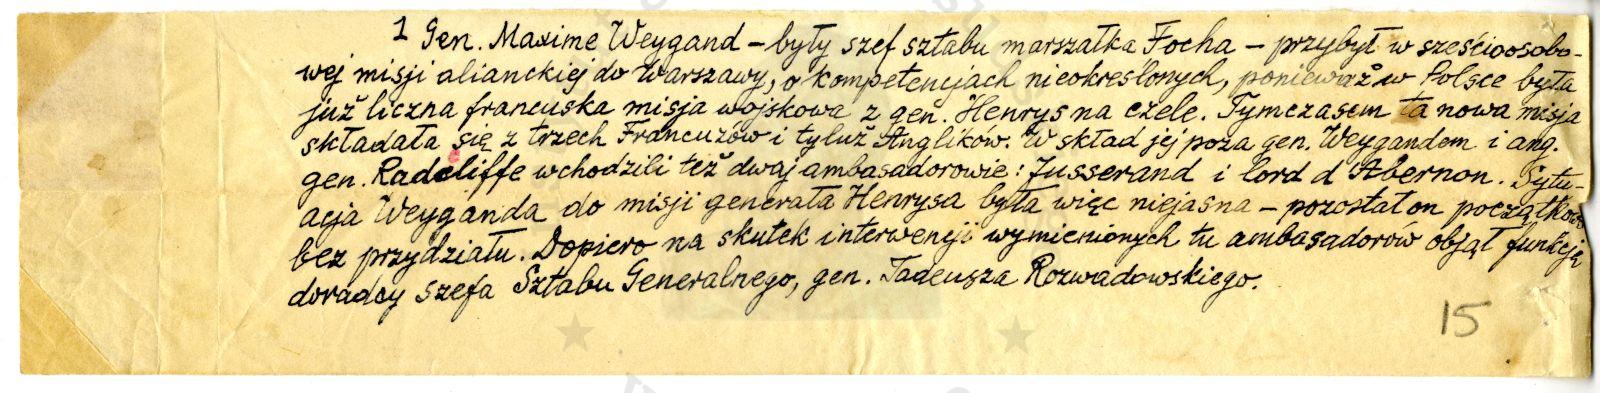 1 Gen. Maxime Weygand – były szef sztabu marszałka Focha – przybył w sześcioosobo-
wej misji alianckiej do Warszawy, o kompetencjach nieokreślonych, ponieważ w Polsce była
już liczna francuska misja wojskowa z gen. Henrys na czele. Tymczasem ta nowa misja
składała się z trzech Francuzów i tyluż Anglików. W skład jej poza gen. Weygandem i ang.
gen. Radcliffe wchodzili też dwaj ambasadorowie: Jusserand i lord d'Abernon. Sytu-
acja Weyganda do misji generała Henrysa była więc niejasna – pozostał on początkowo
bez przydziału. Dopiero na skutek interwencji wymienionych tu ambasadorów objął funkcję
doradcy szefa Sztabu Generalnego, gen. Tadeusza Rozwadowskiego.
15